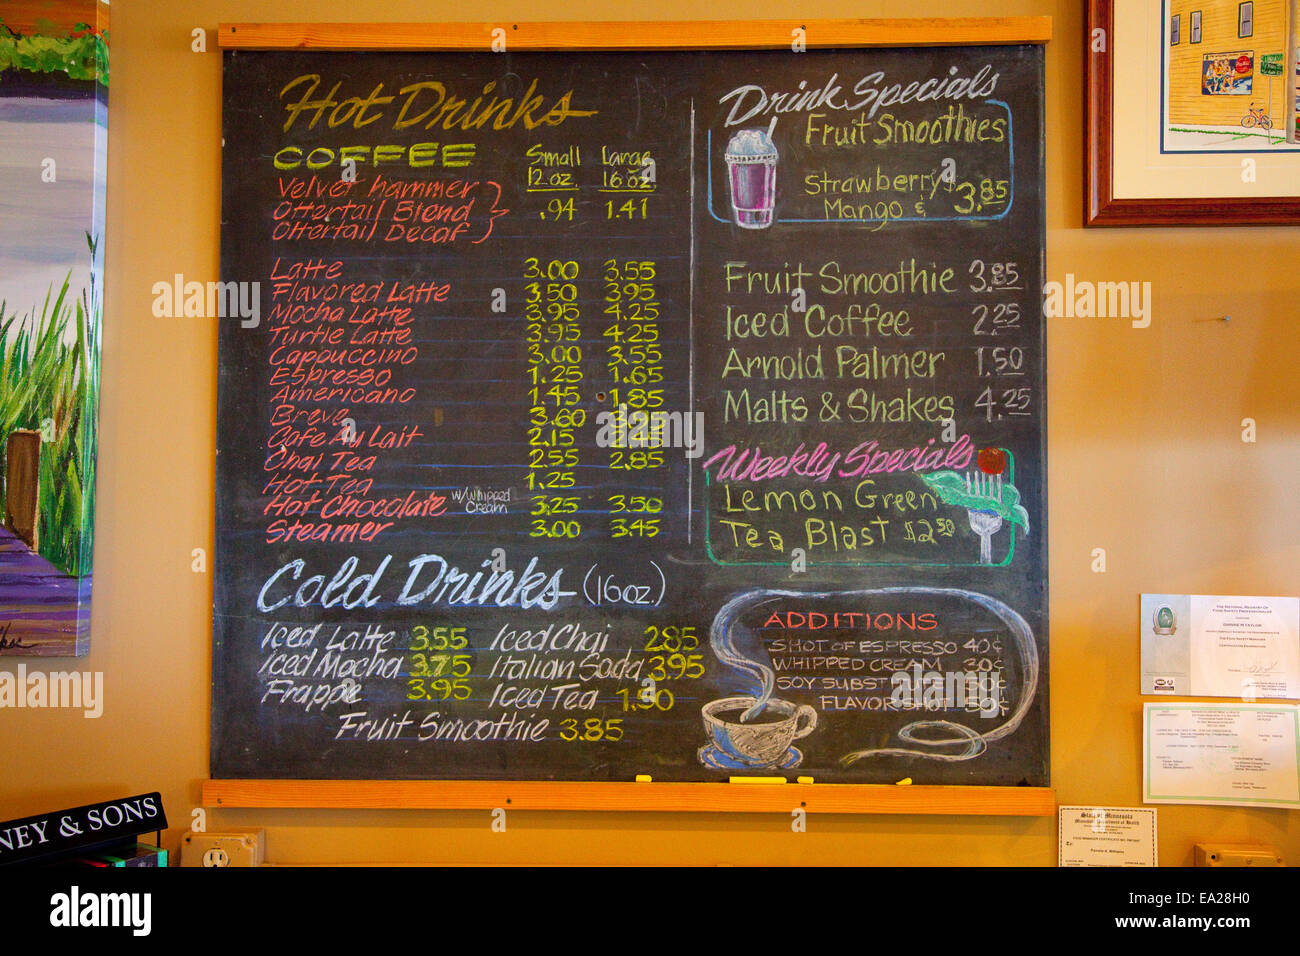 Hot Drinks
COFFEE Small Large
12 oz. 16 oz.
Velvet hammer
Ottertail Blend .94 1.41
Ottertail Decaf
Latte 3.00 3.55
Flavored Latte 3.50 3.95
Mocha Latte 3.95 4.25
Turtle Latte 3.95 4.25
Cappuccino 3.00 3.55
Espresso 1.25 1.65
Americano 1.45 1.85
Breve 3.60 3.95
Cafe Au Lait 2.15 2.45
Chai Tea 2.55 2.85
Hot Tea 1.25
Hot Chocolate w/Whipped Cream 3.25 3.50
Steamer 3.00 3.45
Cold Drinks (16oz.)
Iced Latte 3.55 Iced Chai 2.85
Iced Mocha 3.75 Italian Soda 3.95
Frappe 3.95 Iced Tea 1.50
Fruit Smoothie 3.85
Drink Specials
Fruit Smoothies
Strawberry $
Mango & 3.85
Fruit Smoothie 3.85
Iced Coffee 2.25
Arnold Palmer 1.50
Malts & Shakes 4.25
Weekly Specials
Lemon Green
Tea Blast $2.50
ADDITIONS
SHOT OF ESPRESSO 40¢
WHIPPED CREAM 30¢
SOY SUBSTITUTE 50¢
FLAVOR SHOT 50¢
NEY & SONS
State of Minnesota
a alamy
alamy
Image ID: EA28H0
www.alamy.com